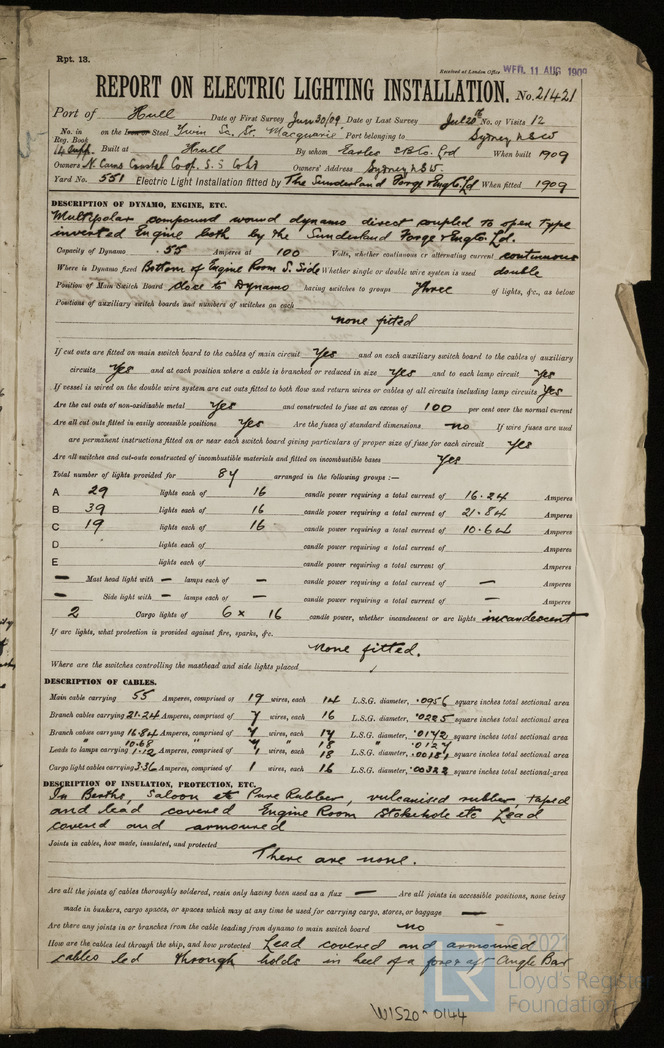 Rpt. 13.
Received at London Office WED. 11 AUG 1909
REPORT ON ELECTRIC LIGHTING INSTALLATION. No. 21421
Port of Hull Date of First Survey Jun 30/09 Date of Last Survey Jul 20th No. of Visits 12
No. in Reg. Book on the Iron or Steel Twin Sc. St. Macquarie Port belonging to Sydney NSW
Supp. Built at Hull By whom Earles S.B. Co. Ltd When built 1909
Owners N. Coast Coop. S.S Co Ld Owners' Address Sydney NSW.
Yard No. 551 Electric Light Installation fitted by The Sunderland Forge & Eng Co. Ld When fitted 1909
DESCRIPTION OF DYNAMO, ENGINE, ETC.
Multipolar compound wound dynamo direct coupled to open type
inverted Engine both by the Sunderland Forge & Eng Co Ld.
Capacity of Dynamo 55 Amperes at 100 Volts, whether continuous or alternating current continuous
Where is Dynamo fixed Bottom of Engine Room S. Side Whether single or double wire system is used double
Position of Main Switch Board close to Dynamo having switches to groups three of lights, &c., as below
Positions of auxiliary switch boards and numbers of switches on each
none fitted
If cut outs are fitted on main switch board to the cables of main circuit Yes and on each auxiliary switch board to the cables of auxiliary
circuits Yes and at each position where a cable is branched or reduced in size Yes and to each lamp circuit Yes
If vessel is wired on the double wire system are cut outs fitted to both flow and return wires or cables of all circuits including lamp circuits Yes
Are the cut outs of non-oxidizable metal Yes and constructed to fuse at an excess of 100 per cent over the normal current
Are all cut outs fitted in easily accessible positions Yes Are the fuses of standard dimensions no If wire fuses are used
are permanent instructions fitted on or near each switch board giving particulars of proper size of fuse for each circuit Yes
Are all switches and cut-outs constructed of incombustible materials and fitted on incombustible bases Yes
Total number of lights provided for 87 arranged in the following groups :—
A 29 lights each of 16 candle power requiring a total current of 16.24 Amperes
B 39 lights each of 16 candle power requiring a total current of 21.84 Amperes
C 19 lights each of 16 candle power requiring a total current of 10.64 Amperes
D lights each of candle power requiring a total current of Amperes
E lights each of candle power requiring a total current of Amperes
— Mast head light with — lamps each of — candle power requiring a total current of — Amperes
— Side light with — lamps each of — candle power requiring a total current of — Amperes
2 Cargo lights of 6 x 16 candle power, whether incandescent or arc lights incandescent
If arc lights, what protection is provided against fire, sparks, &c.
none fitted.
Where are the switches controlling the masthead and side lights placed
DESCRIPTION OF CABLES.
Main cable carrying 55 Amperes, comprised of 19 wires, each 14 L.S.G. diameter, .0956 square inches total sectional area
Branch cables carrying 21.24 Amperes, comprised of 7 wires, each 16 L.S.G. diameter, .0225 square inches total sectional area
Branch cables carrying 16.84 Amperes, comprised of 7 wires, each 17 L.S.G. diameter, .0172 square inches total sectional area
" 10.68 " 7 " 18 " .0127
Leads to lamps carrying 1.12 Amperes, comprised of 1 wires, each 18 L.S.G. diameter, .00181 square inches total sectional area
Cargo light cables carrying 3.36 Amperes, comprised of 1 wires, each 16 L.S.G. diameter, .00322 square inches total sectional area
DESCRIPTION OF INSULATION, PROTECTION, ETC.
In Berths, Saloon etc Pure Rubber, vulcanised rubber, taped
and lead covered Engine Room Stokehole etc Lead
covered and armoured
Joints in cables, how made, insulated, und protected
There are none.
Are all the joints of cables thoroughly soldered, resin only having been used as a flux — Are all joints in accessible positions, none being
made in bunkers, cargo spaces, or spaces which may at any time be used for carrying cargo, stores, or baggage —
Are there any joints in or branches from the cable leading from dynamo to main switch board no
How are the cables led through the ship, and how protected Lead covered and armoured
cables led through holds in heel of a fore & aft Angle Bar
© 2021
LR Lloyd's Register
Foundation
W1520-0144